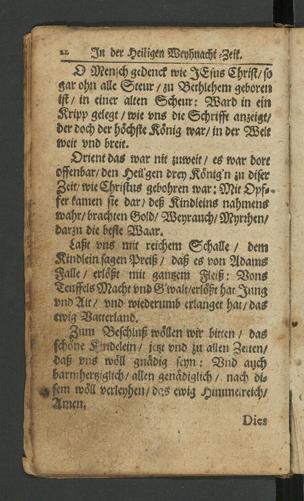 22 In der Heiligen Weyhnacht-Zeit.
O Mensch gedenck wie JEsus Christ/ so
gar ohn alle Steur/ zu Bethlehem geboren
ist/ in einer alten Scheur: Ward in ein
Kripp gelegt/ wie vns die Schrifft anzeigt/
der doch der höchste König war/ in der Welt
weit vnd breit.
Orient das war nit zuweit/ es war dort
offenbar/ den Heil'gen drey König'n zu diser
Zeit/ wie Christus gebohren war: Mit Opf-
fer kamen sie dar/ deß Kindleins nahmens
wahr/ brachten Gold/ Weyrauch/ Myrrhen/
darzu die beste Waar.
Laßt vns mit reichem Schalle/ dem
Kindlein sagen Preiß/ daß es von Adams
Falle/ erlößt mit gantzem Fleiß: Vons
Teuffels Macht vnd G'walt/ erlößt hat Jung
vnd Alt/ vnd wiederumb erlanget hat/ das
ewig Vatterland.
Zum Beschluß wöllen wir bitten/ das
schöne Kindelein/ jetzt vnd zu allen Zeiten/
daß vns wöll gnädig seyn: Vnd auch
barmhertziglich/ allen genädiglich/ nach di-
sem wöll verleyhen/ das ewig Himmelreich/
Amen.
Dies